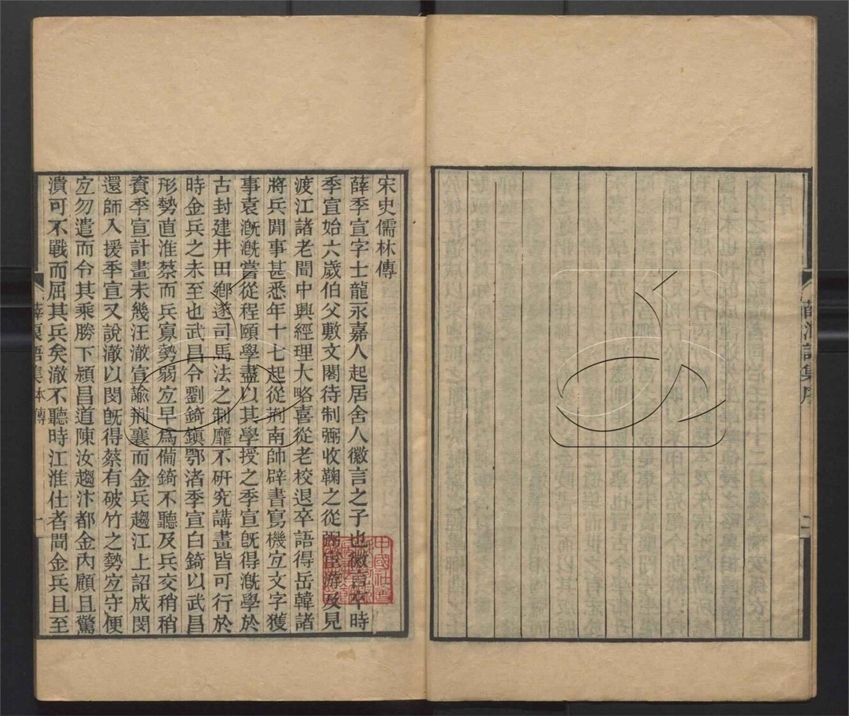 宋史儒林傳
薛季宣字士龍永嘉人起居舍人徽言之子也徽言卒時
季宣始六歲伯父敷文閣待制弼收鞠之從弼宦游及見
渡江諸老聞中興經理大略喜從老校退卒語得岳韓諸
將兵間事甚悉年十七起從荆南帥辟書寫機宜文字獲
事袁溉溉嘗從程頤學盡以其學授之季宣旣得溉學於
古封建井田鄉遂司馬法之制靡不硏究講畫皆可行於
時金兵之未至也武昌令劉錡鎮鄂渚季宣白錡以武昌
形勢直淮蔡而兵寡勢弱宜早爲備錡不聽及兵交稍稍
資季宣計畫未幾汪澈宣諭荆襄而金兵趨江上詔成閔
還師入援季宣又說澈以閔旣得蔡有破竹之勢宜守便
宜勿遣而令其乘勝下潁昌道陳汝趨汴都金內顧且驚
潰可不戰而屈其兵矣澈不聽時江淮仕者聞金兵且至
薛浪語集本傳
一
薛浪語集序
二